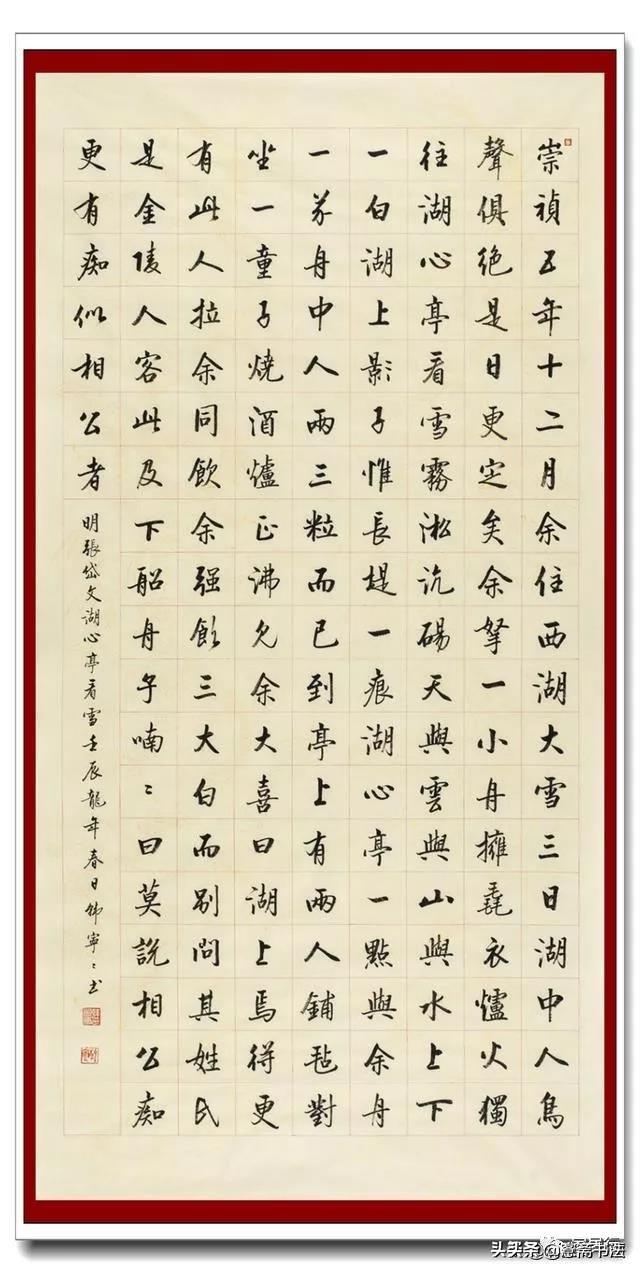 崇禎五年十二月余住西湖大雪三日湖中人鳥
聲俱絕是日更定矣余拏一小舟擁毳衣爐火獨
往湖心亭看雪霧淞沆碭天與雲與山與水上下
一白湖上影子惟長堤一痕湖心亭一點與余舟
一芥舟中人兩三粒而已到亭上有兩人鋪毡對
坐一童子燒酒爐正沸見余大喜曰湖上焉得更
有此人拉余同飲余强飲三大白而別問其姓氏
是金陵人客此及下船舟子喃〻曰莫説相公痴
更有痴似相公者
明張岱文湖心亭看雪壬辰龍年春日韩寧〻书
头条 书法